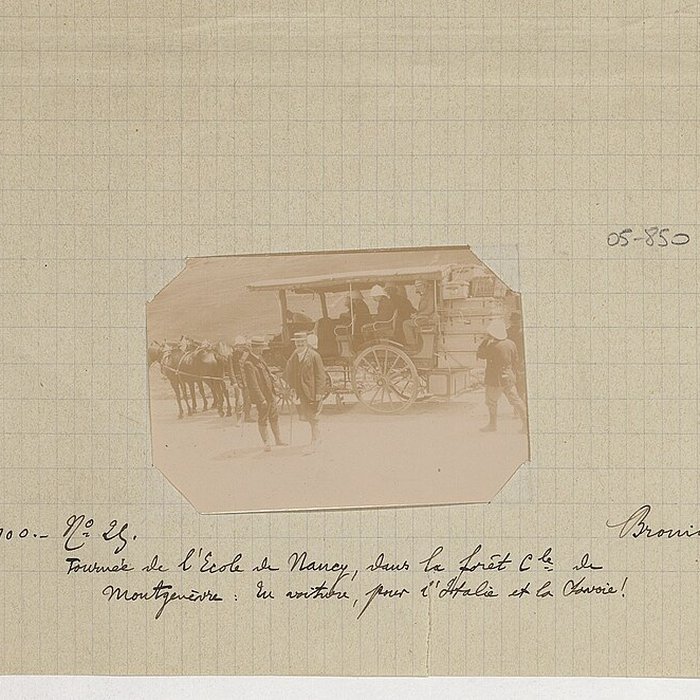 05-850
900.- Nº 25.
Tournée de l'Ecole de Nancy, dans la forêt Cle de
Montgenèvre : En voiture, pour l'Italie et la Savoie !